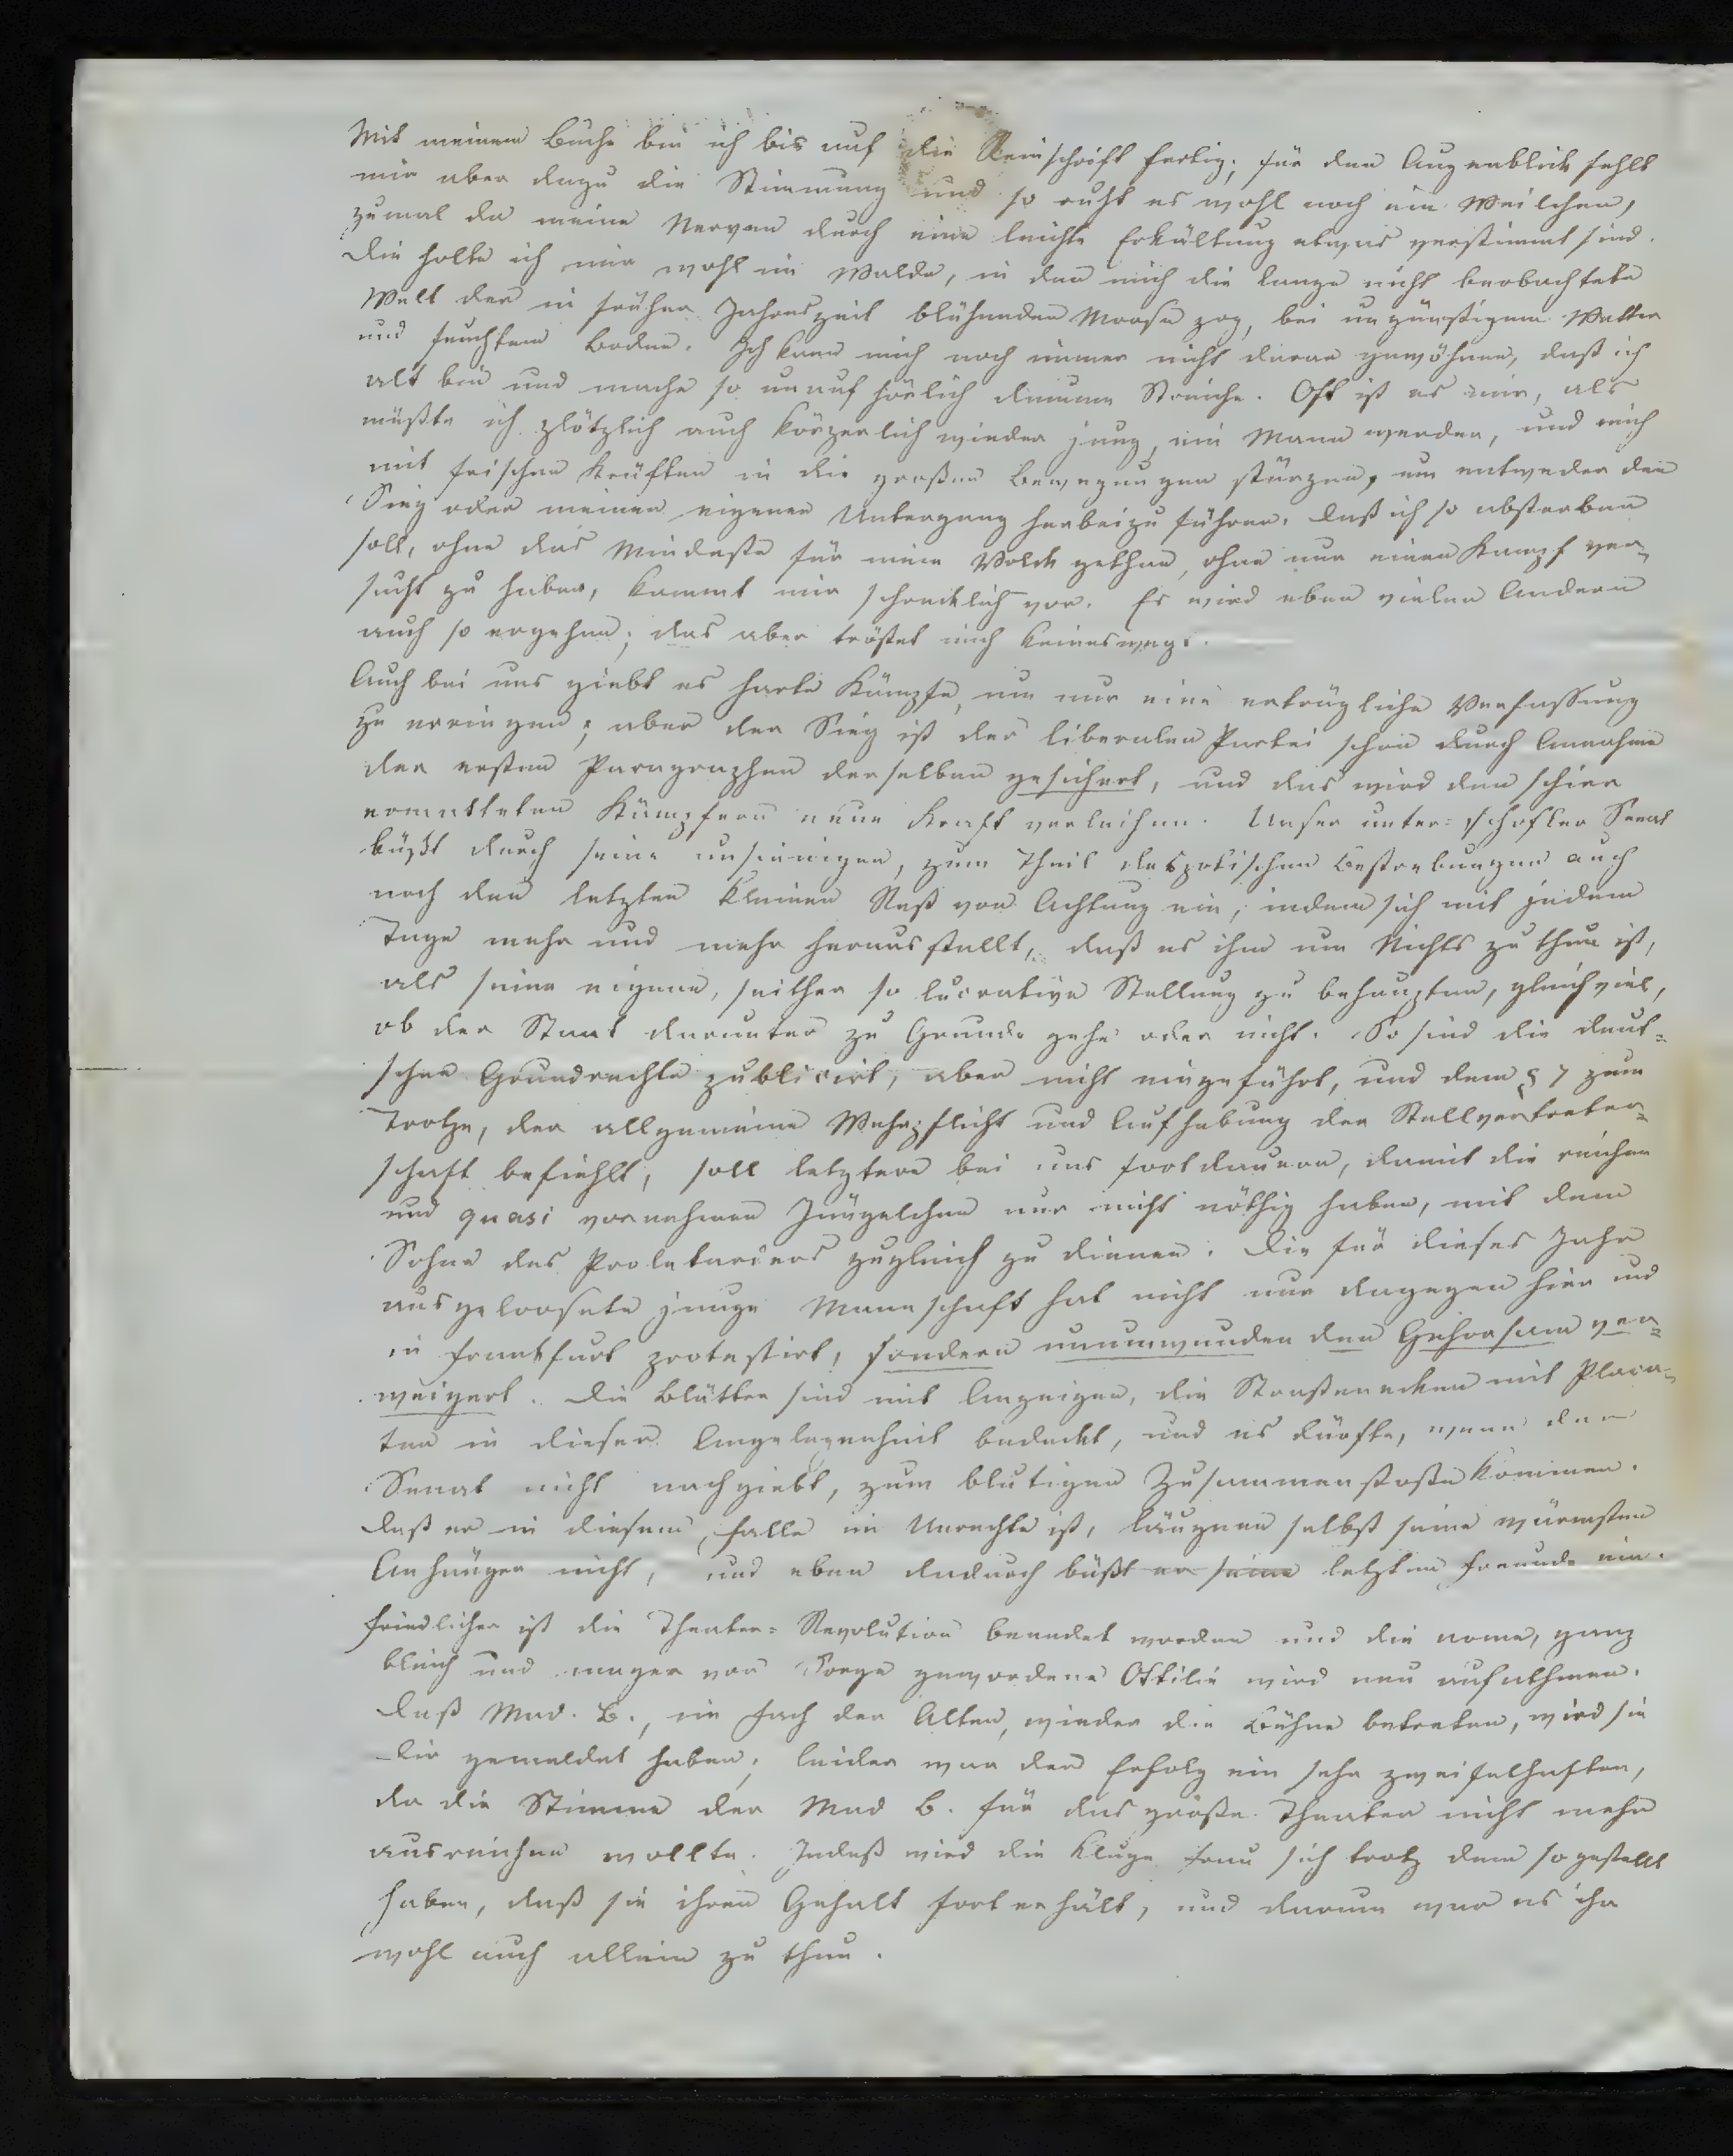 Mit meinem Buche bin ich bis auf die Reinschrift fertig; für den Augenblick fehlt
mir aber dazu die Stimmung und so ruht es wohl noch ein Weilchen,
zumal da meine Nerven durch eine leichte Erkältung etwas verstimmt sind.
Die holte ich mir wohl im Walde, in den mich die lange nicht beobachtete
Welt der in früher Jahreszeit blühenden Moose zog, bei ungünstigem Wetter
und feuchtem Boden. Ich kann mich noch immer nicht daran gewöhnen, daß ich
alt bin und mache so unaufhörlich dumme Streiche. Oft ist es mir, als
müßte ich plötzlich auch körperlich wieder jung, ein Mann werden, und mich
mit frischen Kräften in die großen Bewegungen stürzen, um entweder den
Sieg oder meinen eigenen Untergang herbeizuführen. Daß ich so absterben
soll, ohne das Mindeste für mein Volck gethan, ohne nur einen Kampf ver-
sucht zu haben, kommt mir schrecklich vor. Es wird eben vielen Andern
auch so ergehen; das aber tröstet mich keineswegs.
Auch bei uns giebt es harte Kämpfe, um nur eine erträgliche Verfassung
zu erringen; aber der Sieg ist der liberalen Partei schon durch Annahme
der ersten Paragraphen derselben gesichert, und das wird den schier
ermatteten Kämpfern neue Kraft verleihen. Unser unter=schofler Senat
büßt durch seine unsinnigen, zum Theil despotischen Bestrebungen auch
noch den letzten kleinen Rest von Achtung ein, indem sich mit jedem
Tage mehr und mehr herausstellt, daß es ihm um Nichts zu thun ist,
als seine eigene, seither so lucrative Stellung zu behaupten, gleichviel,
ob der Staat darunter zu Grunde gehe oder nicht. So sind die deut=
schen Grundrechte publicirt, aber nicht eingeführt, und dem § 7 zum
Trotze, der allgemeine Wehrpflicht und Aufhebung der Stellvertreter=
schaft befiehlt, soll letztere bei uns fortdauern, damit die reichen
und quasi vornehmen Jüngelchen nur nicht nöthig haben, mit dem
Sohne des Proletariers zugleich zu dienen. Die für dieses Jahr
ausgeloosete junge Mannschaft hat nicht nur dagegen hier und
in Frankfurt protestirt, sondern unumwunden den Gehorsam ver=
weigert. Die Blätter sind mit Anzeigen, die Straßenecken mit Placa-
ten in dieser Angelegenheit bedeckt, und es dürfte, wenn der
Senat nicht nachgiebt, zum blutigen Zusammenstoße kommen.
Daß er in diesem Falle im Unrechte ist, läugnen selbst seine wärmsten
Anhänger nicht, und eben dadurch büßt er seine letzten Freunde ein.
Friedlicher ist die Theater=Revolution beendet worden und die arme, ganz
bleich und mager vor Sorge gewordene Ottilie wird neu aufathmen.
Daß Mad. B., im Fach der Alten, wieder die Bühne betreten, wird sie
Dir gemeldet haben; leider war der Erfolg ein sehr zweifelhafter,
da die Stimme der Mad B. für das große Theater nicht mehr
ausreichen wollte. Indeß wird die kluge Frau sich trotz dem so gestellt
haben, daß sie ihren Gehalt fort erhält, und darum war es ihr
wohl auch allein zu thun.